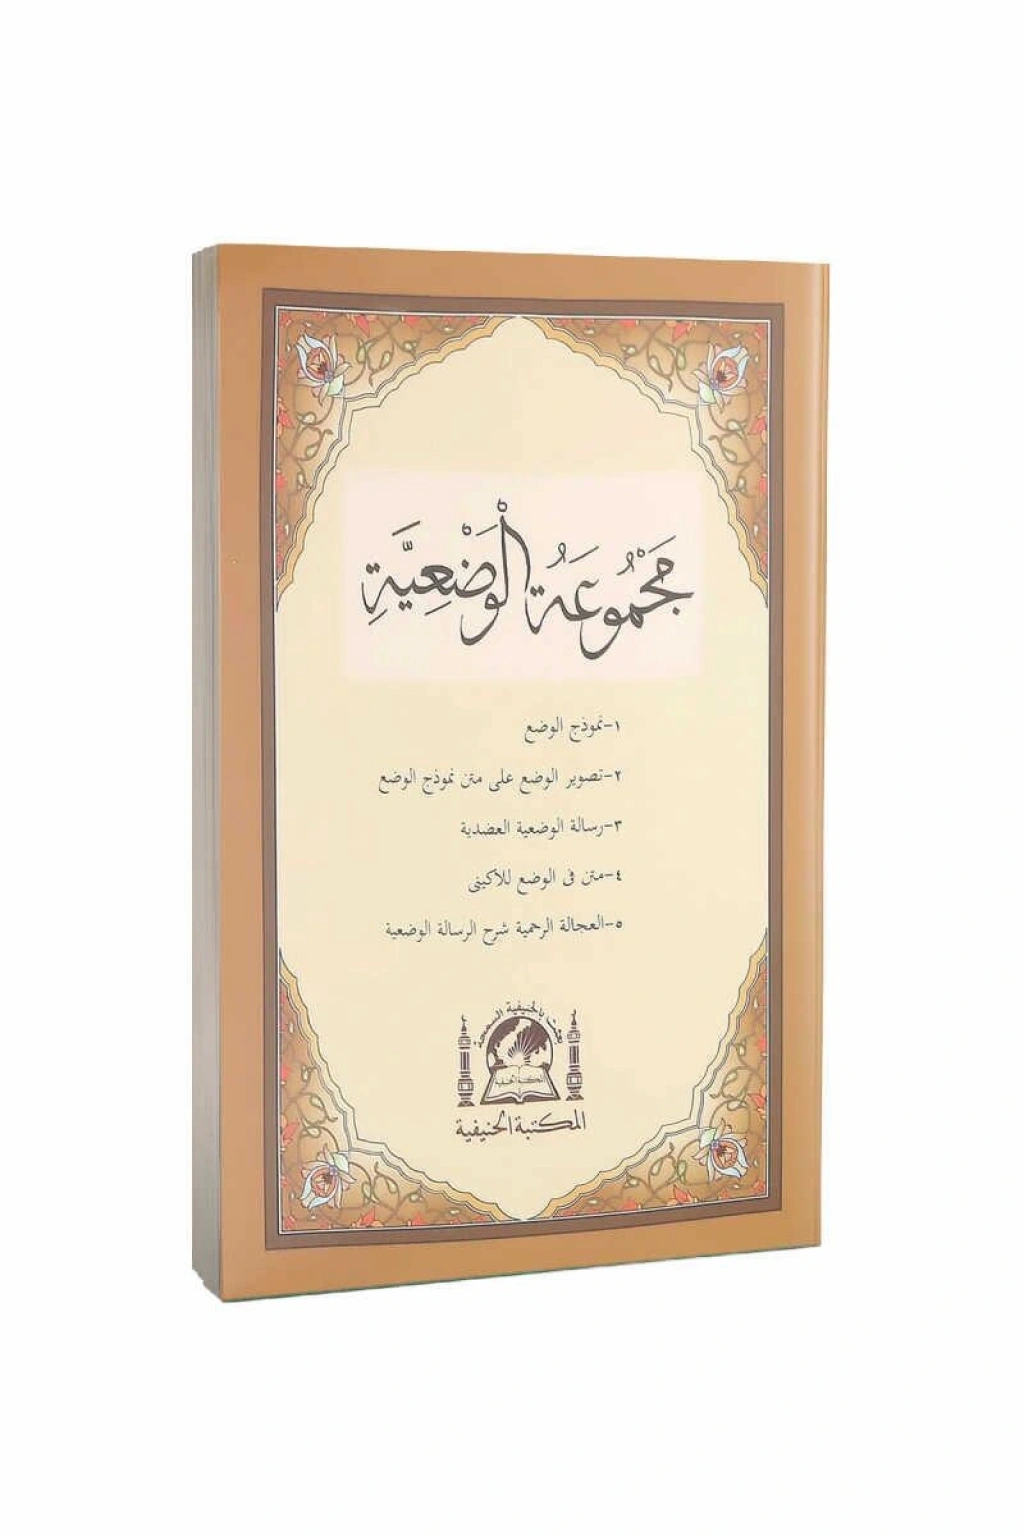 مَجْمُوعَةُ الْوَضْعِيَّةِ
١-نموذج الوضع
٢-تصوير الوضع على متن نموذج الوضع
٣-رسالة الوضعية العضدية
٤-متن فى الوضع للأكينى
٥-العجالة الرحمية شرح الرسالة الوضعية
بعثت بالحنيفية السمحة
المكتبة الحنيفية